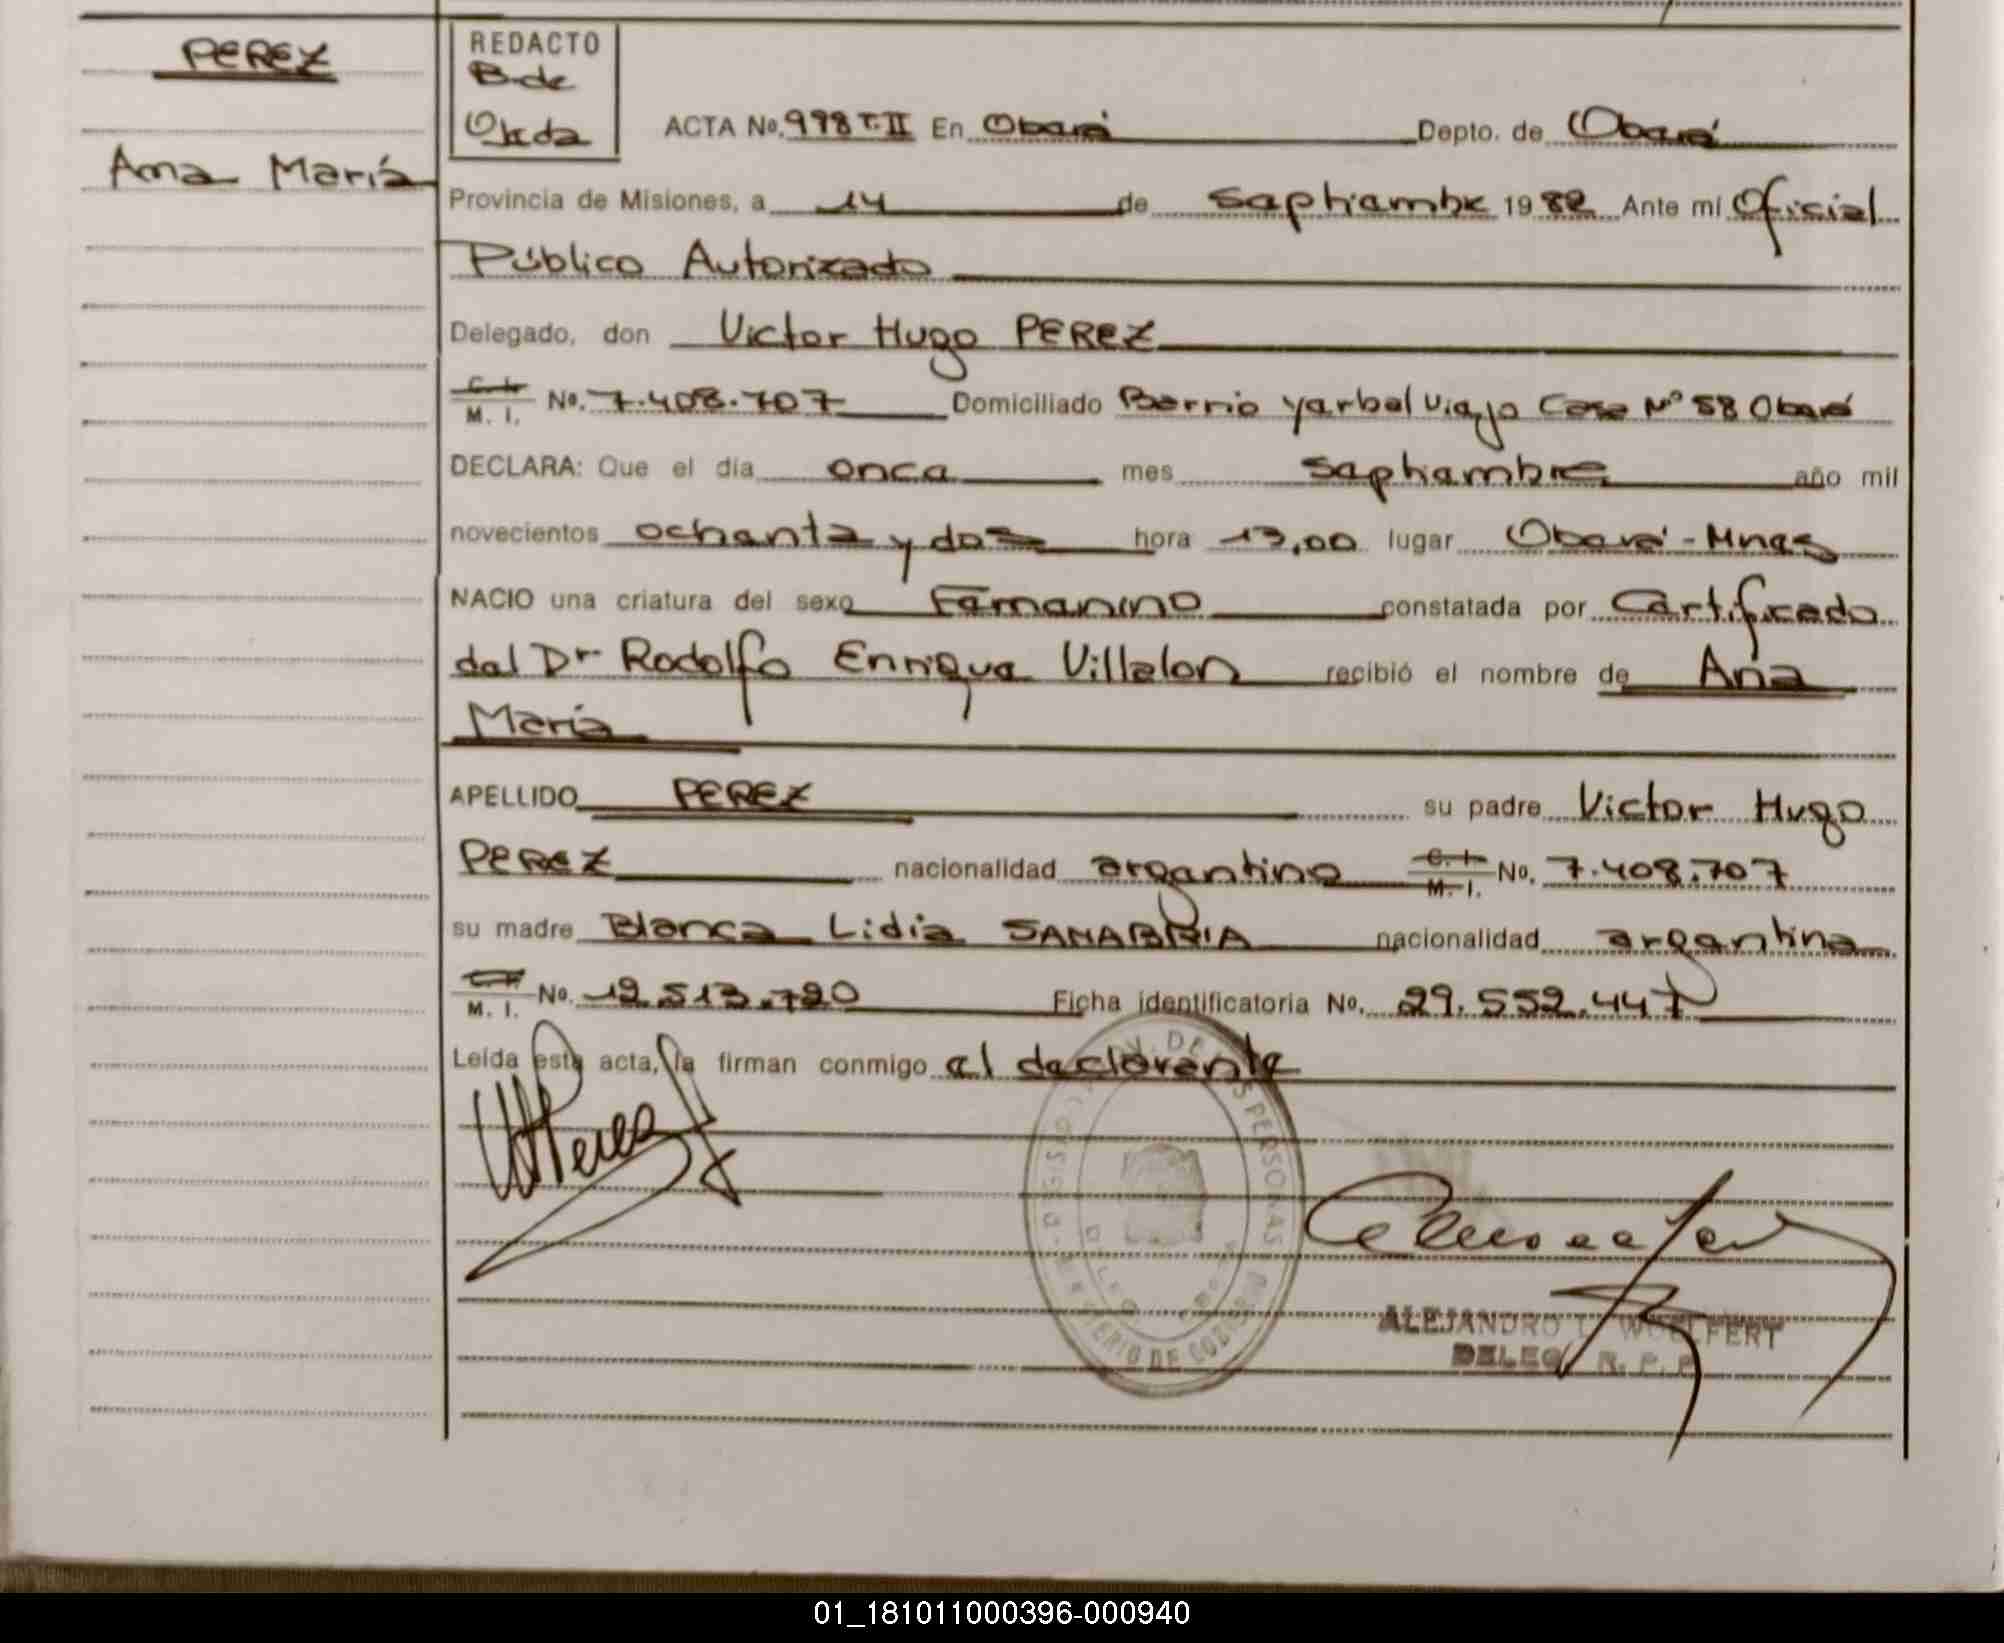 PEREZ
Ana María
REDACTO
B. de
Ojeda
ACTA No. 998 T.II En Oberá Depto. de Oberá
Provincia de Misiones, a 14 de septiembre 1982 Ante mí Oficial
Público Autorizado
Delegado, don Victor Hugo PEREZ
C. I.
M. I. No. 7.408.707 Domiciliado Barrio Yerbal Viejo Casa Nº 58 Oberá
DECLARA: Que el día once mes septiembre año mil
novecientos ochenta y dos hora 13,00 lugar Oberá - Mnes
NACIO una criatura del sexo Femenino constatada por Certificado
del Dr Rodolfo Enrique Villalon recibió el nombre de Ana
María
APELLIDO PEREZ su padre Victor Hugo
PEREZ nacionalidad argentino C. I. M. I. No. 7.408.707
su madre Blanca Lidia SANABRIA nacionalidad argentina
M. I. No. 12.513.720 Ficha identificatoria No. 29.552.447
Leída esta acta, la firman conmigo el declarante
VHPerez
ALEJANDRO L. WOLFERT
DELEG. R. P. P.
01_181011000396-000940